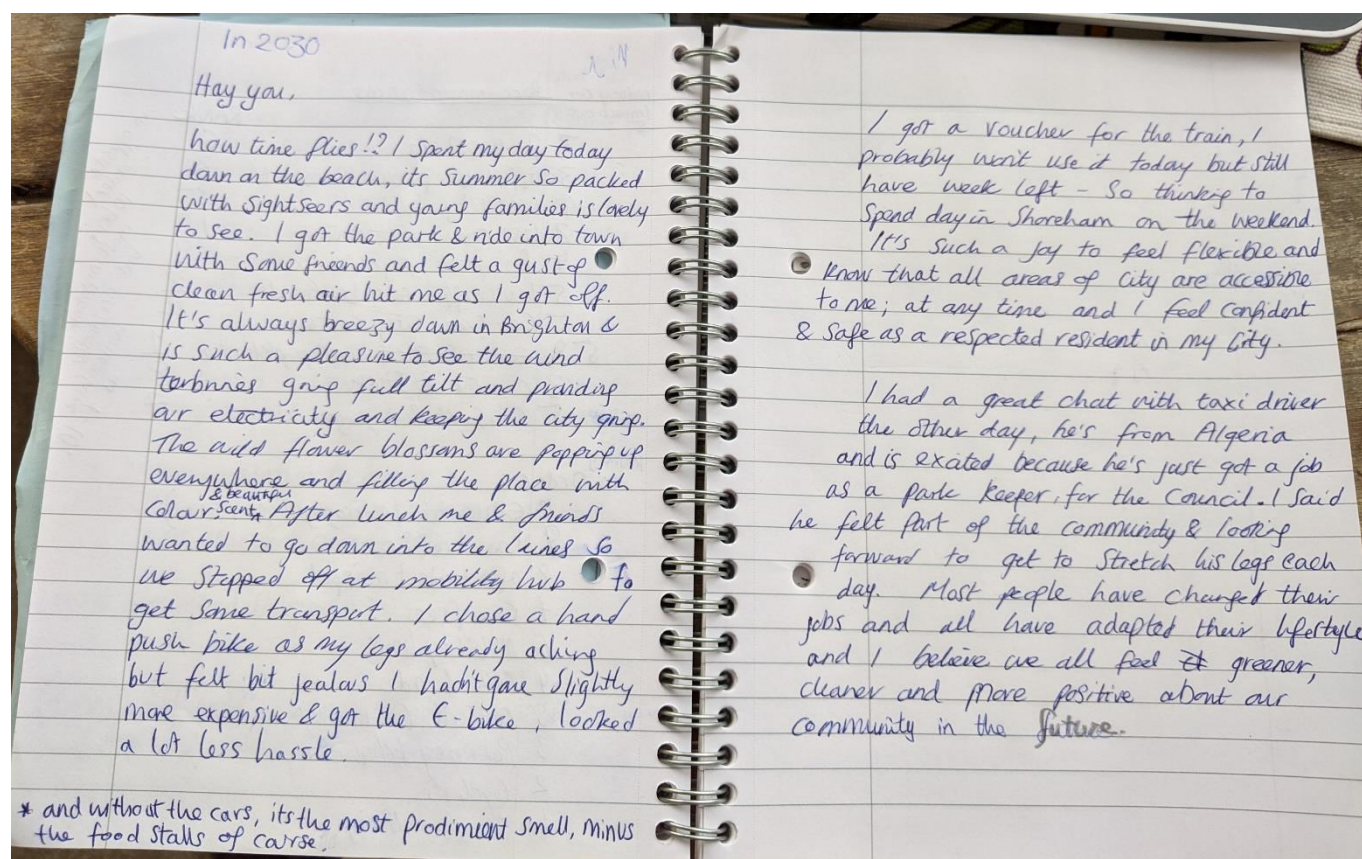 In 2030
Hay you,
how time flies!? I spent my day today
down on the beach, its Summer so packed
with sightseers and young families is lovely
to see. I got the park & ride into town
with some friends and felt a gust of
clean fresh air hit me as I got off.
It's always breezy down in Brighton &
is such a pleasure to see the wind
terbnries going full tilt and providing
our electricity and keeping the city going.
The wild flower blossoms are popping up
everywhere and filling the place with
& beautiful
colour, scent* After lunch me & friends
wanted to go down into the laines so
we stepped off at mobility hub to
get some transport. I chose a hand
push bike as my legs already aching
but felt bit jealous I hadn't gone slightly
more expensive & got the E-bike, looked
a lot less hassle.
* and without the cars, its the most prodimient smell, minus
the food stalls of course.
I got a voucher for the train, I
probably won't use it today but still
have week left - So thinking to
spend day in Shoreham on the weekend.
It's such a joy to feel flexible and
know that all areas of city are accessible
to me; at any time and I feel confident
& safe as a respected resident in my City.
I had a great chat with taxi driver
the other day, he's from Algeria
and is exated because he's just got a job
as a park keeper, for the Council. I said
he felt part of the community & looking
forward to get to stretch his legs each
day. Most people have changed their
jobs and all have adapted their lifestyle
and I believe we all feel greener,
cleaner and more positive about our
community in the future.